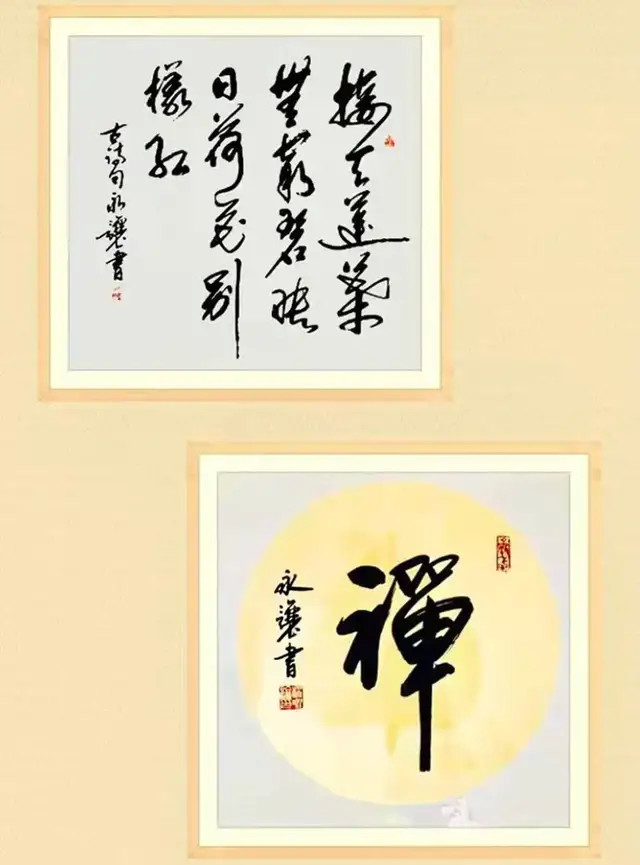 接天蓮葉
無窮碧映
日荷花別
樣紅
古詩句永讓書
禪
永讓書